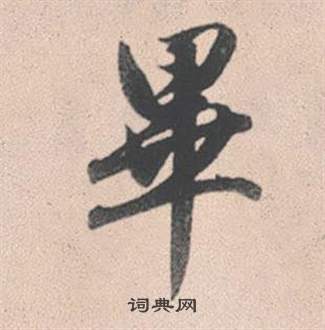 畢
词典网